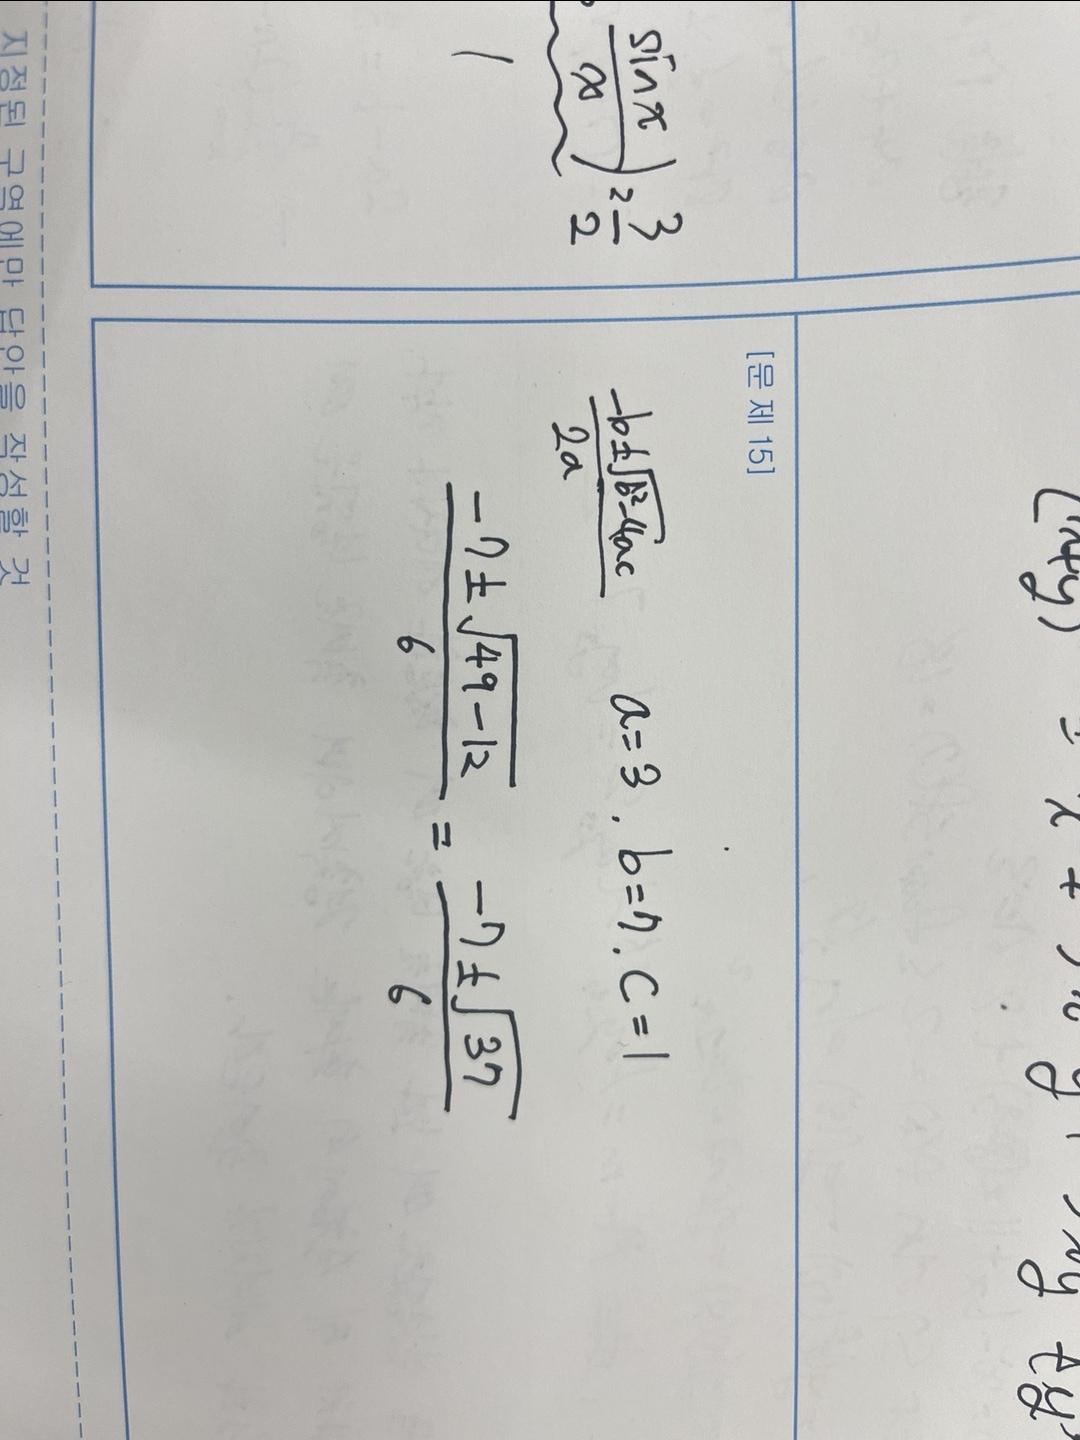 (x+y)
sinx
x
) 2 3
2
1
[문제 15]
-b±√b²-4ac
2a
a=3, b=7, C=1
-7±√49-12
6
= -7±√37
6
지정된 구역에만 답안을 작성할 것